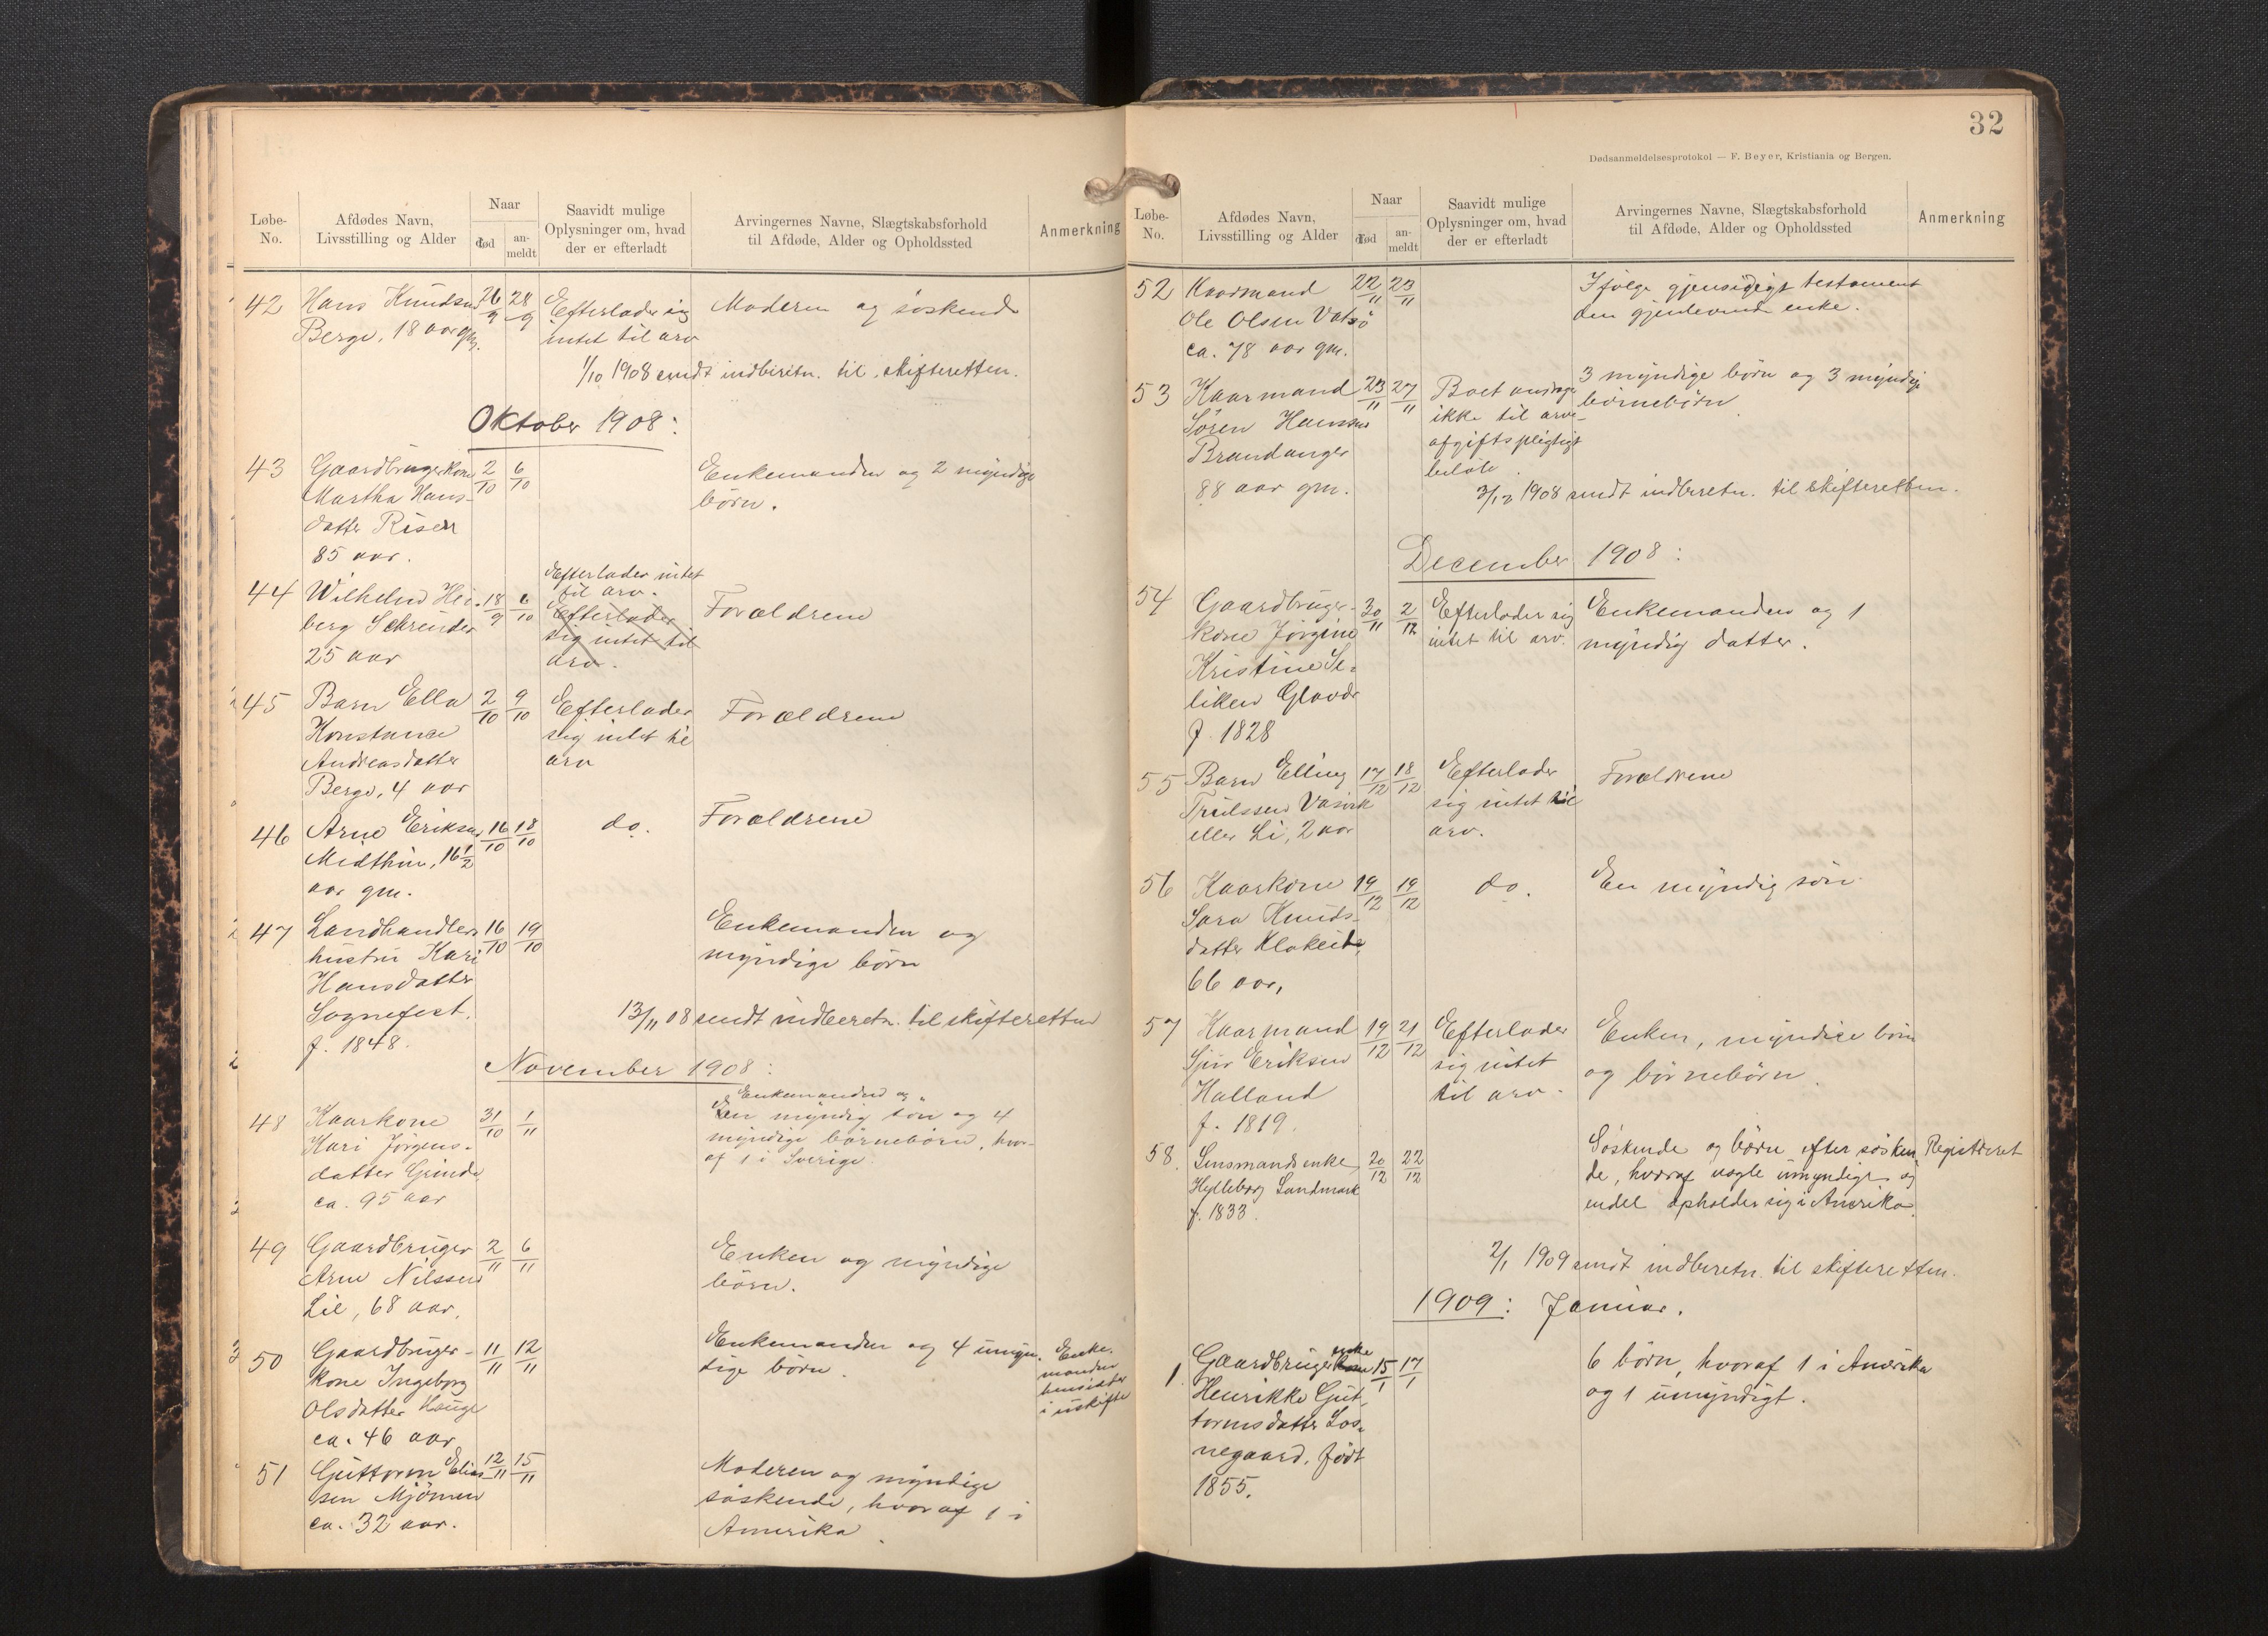 Løbe-No.
Afdødes Navn, Livsstilling og Alder
Naar
død
an-meldt
Saavidt mulige Oplysninger om, hvad der er efterladt
Arvingernes Navne, Slægtskabsforhold til Afdøde, Alder og Opholdssted
Anmerkning
42 Hans Knudsen 26/9 28/9 Efterlader sig Moderen og søskende
Berge, 18 aar gm. intet til arv
1/10 1908 sendt indberetn. til skifteretten.
Oktober 1908:
43 Gaardbrugerkone 2/10 6/10 Enkemanden og 2 myndige
Martha Hans- børn.
datter Risen
85 aar.
Efterlader intet
til arv.
44 Wilhelm Hei- 18/9 6/10 Efterlader Forældrene
berg Schreuder sig intet til
25 aar arv.
45 Barn Ella 2/10 9/10 Efterlader Forældrene
Konstanse sig intet til
Andreasdatter arv
Berge, 4 aar
46 Arne Eriksen 16/10 18/10 do. Forældrene
Midthun, 16 1/2
aar gm.
47 Landhandler 16/10 19/10 Enkemanden og
hustru Kari myndige børn
Hansdatter
Sognefest,
f. 1848.
13/11 08 sendt indberetn. til skifteretten
November 1908:
Enkemanden og
48 Kaarkone 31/10 1/11 En myndig søn og 4
Kari Jørgens- myndige børnebørn, hvor-
datter Grinde, af 1 i Sverige.
ca. 95 aar
49 Gaardbruger 2/11 6/11 Enken og myndige
Arne Nilssen børn.
Lie, 68 aar.
50 Gaardbruger- 11/11 12/11 Enkemanden og 4 umyn- Enke-
kone Ingeborg dige børn. manden
Olsdatter Hauge hensidder
ca. 46 aar i uskifte
51 Guttorm Elias- 12/11 15/11 Moderen og myndige
sen Mjømen søskende, hvoraf 1 i
ca. 32 aar. Amerika.
32
Dødsanmeldelsesprotokol — F. Beyer, Kristiania og Bergen.
Løbe-No.
Afdødes Navn, Livsstilling og Alder
Naar
død
an-meldt
Saavidt mulige Oplysninger om, hvad der er efterladt
Arvingernes Navne, Slægtskabsforhold til Afdøde, Alder og Opholdssted
Anmerkning
52 Kaarmand 22/11 23/11 Ifølge gjensidigt testament
Ole Olsen Vatsø den gjenlevende enke.
ca. 78 aar gm.
53 Kaarmand 23/11 27/11 Boet andrager 3 myndige børn og 3 myndige
Søren Hanssen ikke til arve- børnebørn
Brandanger afgiftspligtigt
88 aar gm. beløb.
3/12 1908 sendt indberetn. til skifteretten.
December 1908:
54 Gaardbruger- 30/11 2/12 Efterlader sig Enkemanden og 1
kone Jørgine intet til arv. myndig datter.
Kristine Se-
liken Glavær
f. 1828
55 Barn Elling 17/12 18/12 Efterlader Forældrene
Trulssen Vasvik sig intet til
eller Li, 2 aar arv.
56 Kaarkone 19/12 19/12 do. En myndig søn
Sara Knuds-
datter Klakeide,
66 aar,
57 Kaarmand 19/12 21/12 Efterlader Enken, myndige børn
Sjur Eriksen sig intet og børnebørn.
Halland til arv.
f. 1819.
58. Lensmandsenke 20/12 22/12 Søskende og børn efter søsken- Registreret
Hylleborg Landmark de, hvoraf nogle umyndige og
f. 1833. endel opholder sig i Amerika.
2/1 1909 sendt indberetn. til skifteretten.
1909: Januar.
enke
1. Gaardbruger kone 15/1 17/1 6 børn, hvoraf 1 i Amerika
Henrikke Gut- og 1 umyndigt.
tormsdatter Los-
negaard, født
1855.